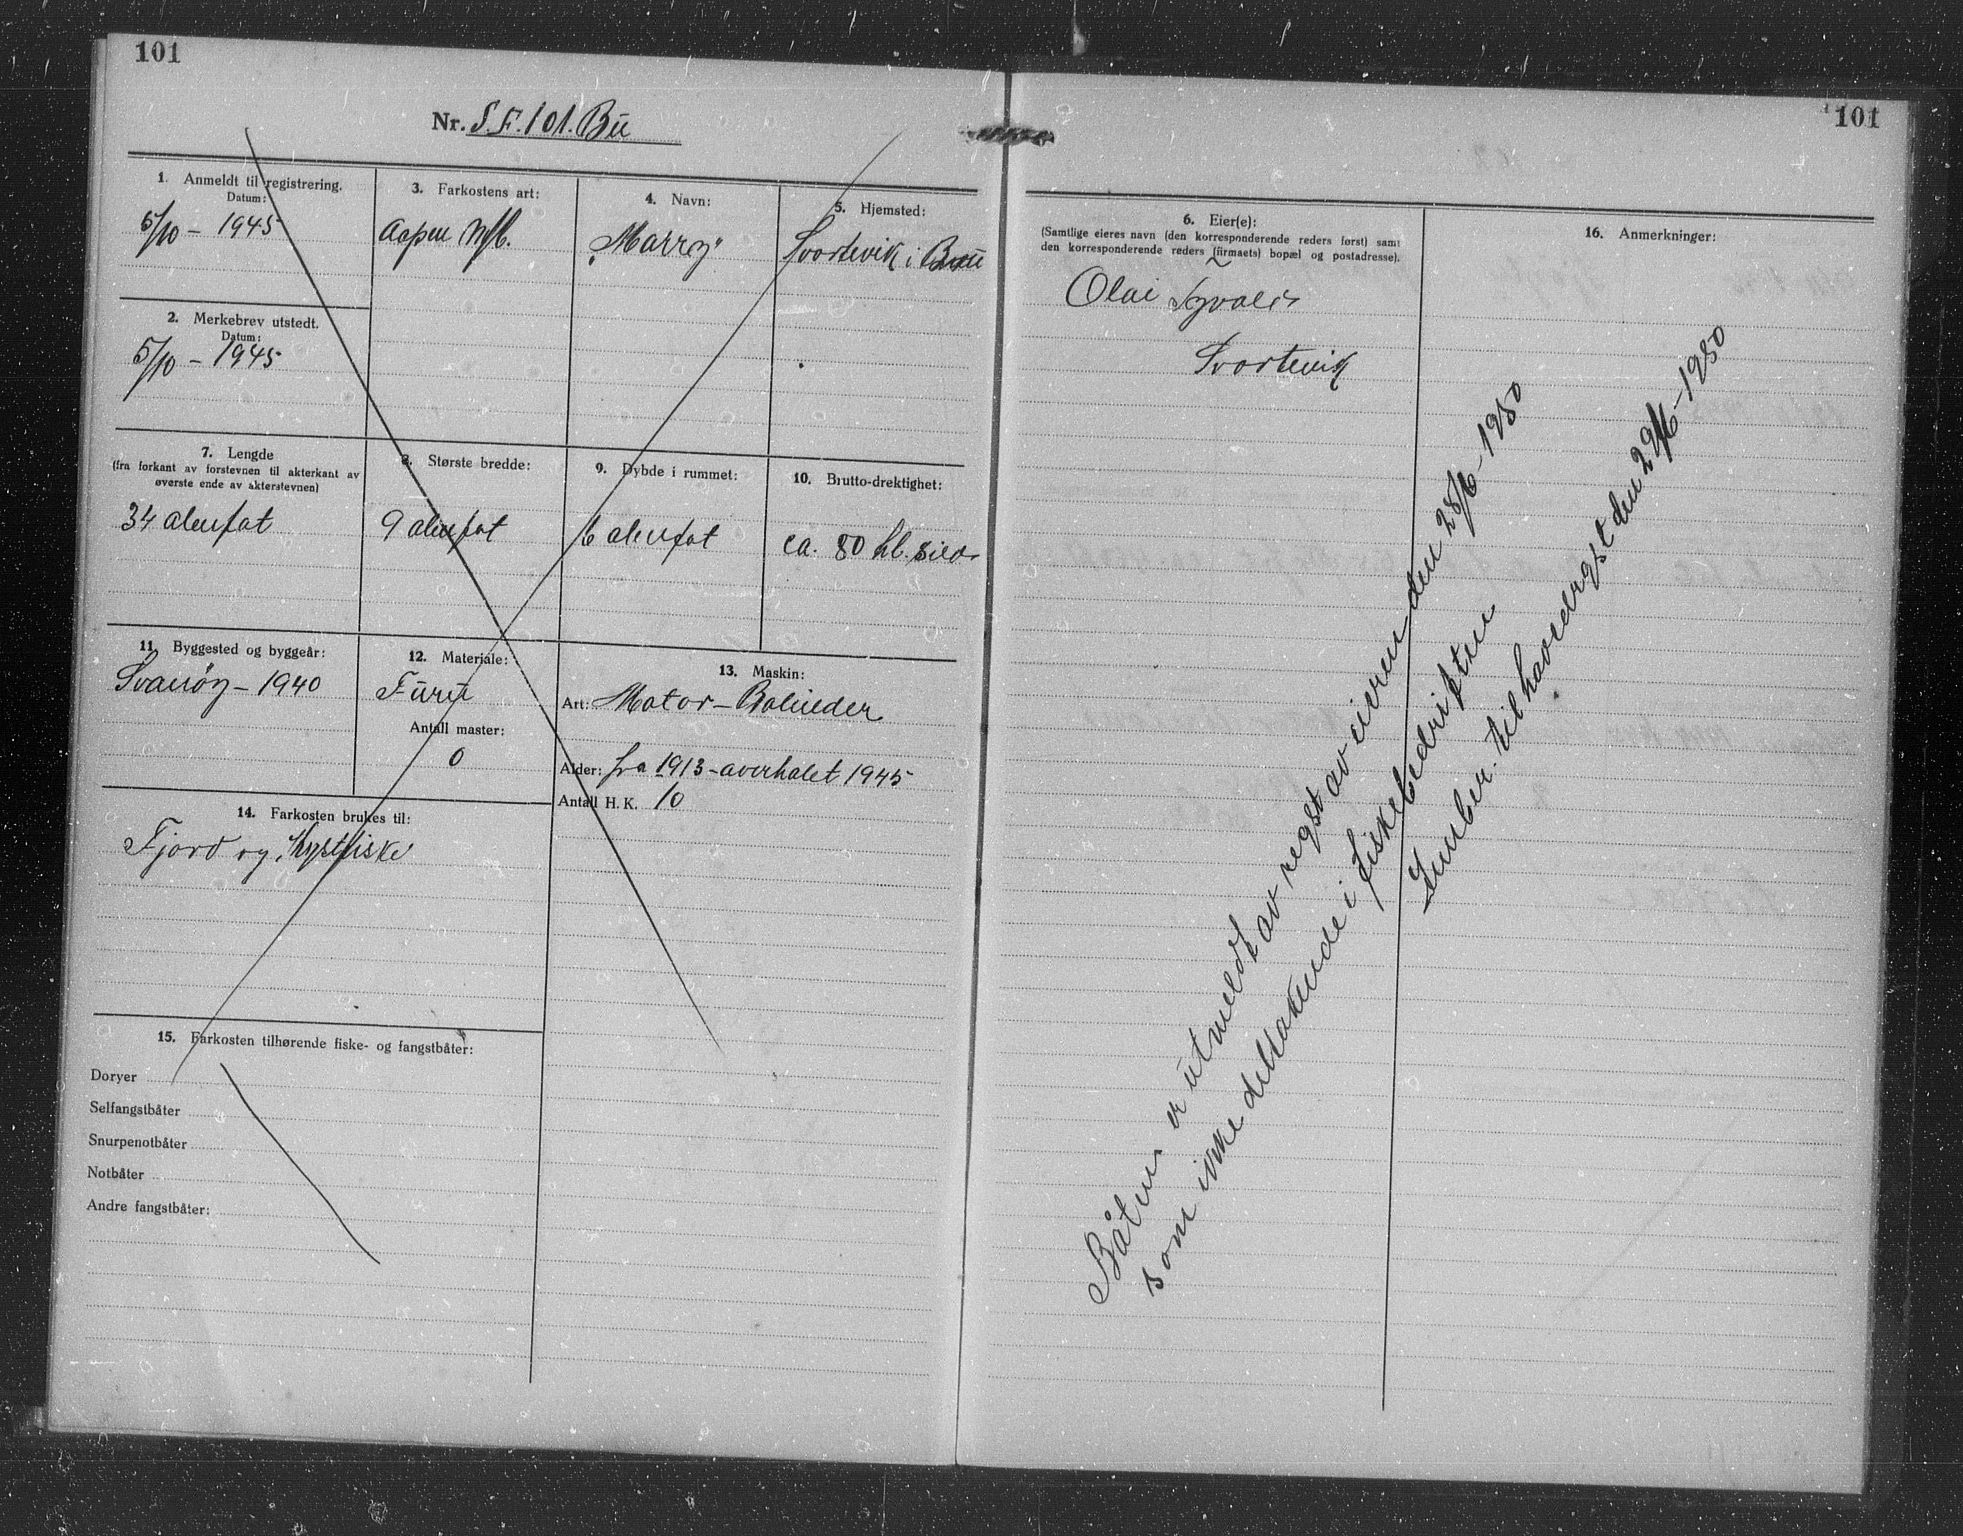 101
Nr. S.F. 101. Bu
1. Anmeldt til registrering.
Datum:
5/10 - 1945
2. Merkebrev utstedt.
Datum:
5/10 - 1945
3. Farkostens art:
Aapen M/b.
4. Navn:
"Marrey"
5. Hjemsted:
Svortevik i Bru
7. Lengde
(fra forkant av forstevnen til akterkant av
øverste ende av akterstevnen)
34 alenfot
8. Største bredde:
9 alenfot
9. Dybde i rummet:
6 alenfot
10. Brutto-drektighet:
ca. 80 hl. sild
11. Byggested og byggeår:
Svanöy - 1940
12. Materiale:
Furu
Antall master:
0
13. Maskin:
Art: Motor - Bolinder
Alder: fra 1913 - overhalet 1945
Antall H. K. 10
14. Farkosten brukes til:
Fjord og Kystfiske
15. Farkosten tilhørende fiske- og fangstbåter:
Doryer
Selfangstbåter
Snurpenotbåter
Notbåter
Andre fangstbåter:
101
6. Eier(e):
(Samtlige eieres navn (den korresponderende reders først) samt
den korresponderende reders (firmaets) bopæl og postadresse).
Olai
Svortevik
16. Anmerkninger:
Båten er utmeldt av regst av eieren den 28/6 - 1950
som ikke deltakende i fiskebedriften
Innber. til hovedregst den 29/6 - 1950